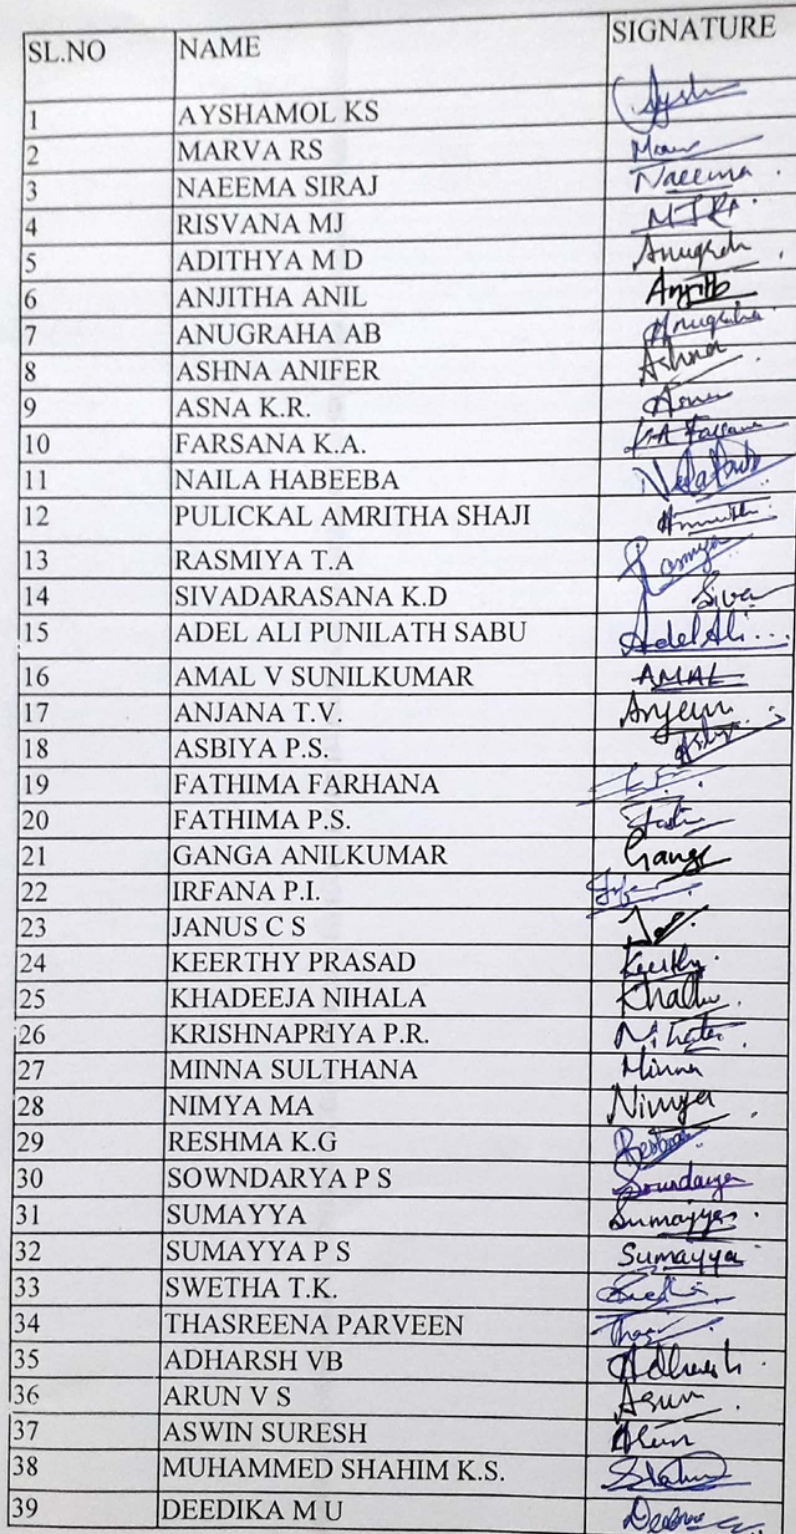 SL.NO NAME SIGNATURE
1 AYSHAMOL KS
2 MARVA RS
3 NAEEMA SIRAJ Naeema
4 RISVANA MJ
5 ADITHYA M D
6 ANJITHA ANIL
7 ANUGRAHA AB Anugraha
8 ASHNA ANIFER Ashna
9 ASNA K.R.
10 FARSANA K.A.
11 NAILA HABEEBA
12 PULICKAL AMRITHA SHAJI
13 RASMIYA T.A
14 SIVADARASANA K.D
15 ADEL ALI PUNILATH SABU Adel Ali
16 AMAL V SUNILKUMAR AMAL
17 ANJANA T.V.
18 ASBIYA P.S.
19 FATHIMA FARHANA
20 FATHIMA P.S.
21 GANGA ANILKUMAR
22 IRFANA P.I.
23 JANUS C S
24 KEERTHY PRASAD Keerthy
25 KHADEEJA NIHALA
26 KRISHNAPRIYA P.R.
27 MINNA SULTHANA Minna
28 NIMYA MA Nimya
29 RESHMA K.G
30 SOWNDARYA P S
31 SUMAYYA Sumayya
32 SUMAYYA P S Sumayya
33 SWETHA T.K.
34 THASREENA PARVEEN
35 ADHARSH VB
36 ARUN V S Arun
37 ASWIN SURESH
38 MUHAMMED SHAHIM K.S.
39 DEEDIKA M U